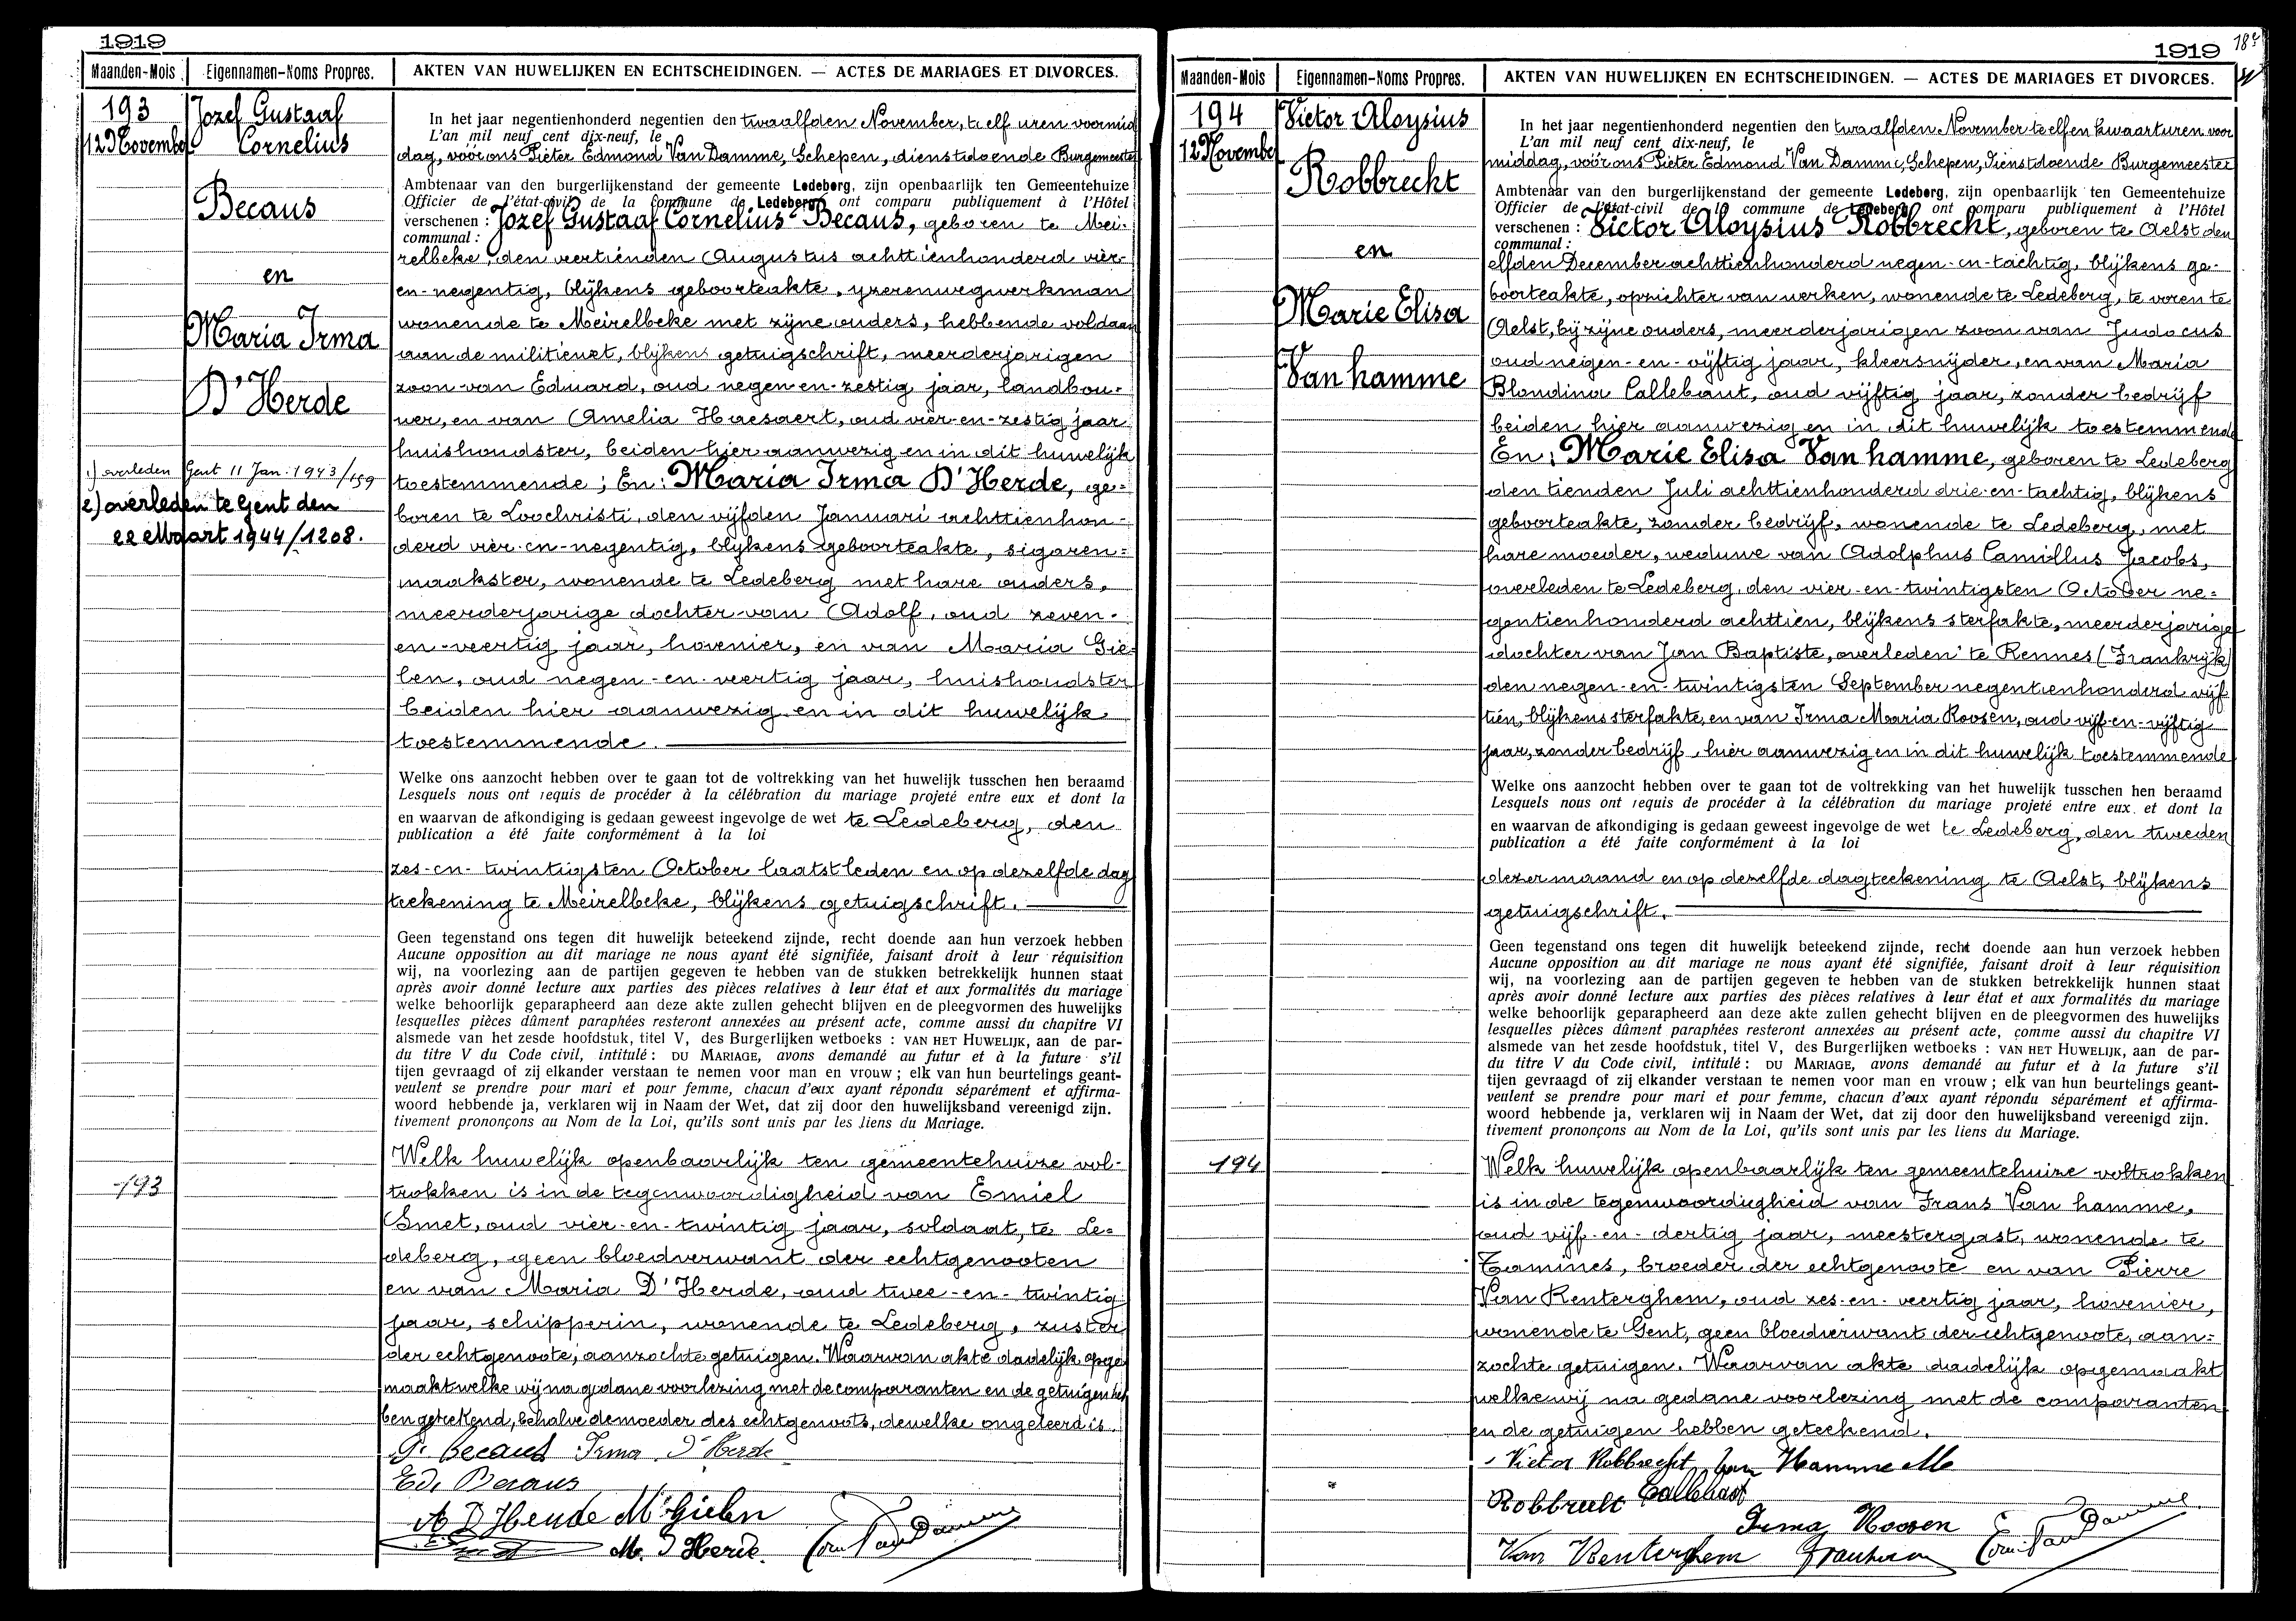 1919
Maanden-Mois
Eigennamen-Noms Propres.
AKTEN VAN HUWELIJKEN EN ECHTSCHEIDINGEN. — ACTES DE MARIAGES ET DIVORCES.
193
12 November
Jozef Gustaaf
Cornelius
Becaus
en
Maria Irma
D'Herde
1) overleden Gent 11 Jan. 1943/159
2) overleden te Gent den
22 Maart 1944/1208.
193
In het jaar negentienhonderd negentien den twaalfden November, te elf uren voormid
L'an mil neuf cent dix-neuf, le
dag, vóór ons Pieter Edmond Van Damme, Schepen, dienstdoende Burgemeester
Ambtenaar van den burgerlijkenstand der gemeente Ledeberg, zijn openbaarlijk ten Gemeentehuize
Officier de l'état-civil de la commune de Ledeberg ont comparu publiquement à l'Hôtel
verschenen : Jozef Gustaaf Cornelius Becaus, geboren te Mei-
communal :
relbeke, den veertienden Augustus achttienhonderd vier-
en-negentig, blijkens geboorteakte, yzerenwegwerkman
wonende te Meirelbeke met zijne ouders, hebbende voldaan
aan de militiewet, blijkens getuigschrift, meerderjarigen
zoon van Eduard, oud negen-en-zestig jaar, landbou-
wer, en van Amelia Haesaert, oud vier-en-zestig jaar
huishoudster, beiden hier aanwezig en in dit huwelijk
toestemmende ; En: Maria Irma D'Herde, ge-
boren te Loochristi, den vijfden Januari achttienhon-
derd vier-en-negentig, blijkens geboorteakte, sigaren-
maakster, wonende te Ledeberg met hare ouders,
meerderjarige dochter van Adolf, oud zeven-
en-veertig jaar, hovenier, en van Maria Gie-
len, oud negen-en-veertig jaar, huishoudster
beiden hier aanwezig en in dit huwelijk
toestemmende.
Welke ons aanzocht hebben over te gaan tot de voltrekking van het huwelijk tusschen hen beraamd
Lesquels nous ont requis de procéder à la célébration du mariage projeté entre eux et dont la
en waarvan de afkondiging is gedaan geweest ingevolge de wet te Ledeberg, den
publication a été faite conformément à la loi
zes-en-twintigsten October laatstleden en op dezelfde dag
teekening te Meirelbeke, blijkens getuigschrift.
Geen tegenstand ons tegen dit huwelijk beteekend zijnde, recht doende aan hun verzoek hebben
Aucune opposition au dit mariage ne nous ayant été signifiée, faisant droit à leur réquisition
wij, na voorlezing aan de partijen gegeven te hebben van de stukken betrekkelijk hunnen staat
après avoir donné lecture aux parties des pièces relatives à leur état et aux formalités du mariage
welke behoorlijk geparapheerd aan deze akte zullen gehecht blijven en de pleegvormen des huwelijks
lesquelles pièces dûment paraphées resteront annexées au présent acte, comme aussi du chapitre VI
alsmede van het zesde hoofdstuk, titel V, des Burgerlijken wetboeks : VAN HET HUWELIJK, aan de par-
du titre V du Code civil, intitulé : DU MARIAGE, avons demandé au futur et à la future s'il
tijen gevraagd of zij elkander verstaan te nemen voor man en vrouw ; elk van hun beurtelings geant-
veulent se prendre pour mari et pour femme, chacun d'eux ayant répondu séparément et affirma-
woord hebbende ja, verklaren wij in Naam der Wet, dat zij door den huwelijksband vereenigd zijn.
tivement prononçons au Nom de la Loi, qu'ils sont unis par les liens du Mariage.
Welk huwelijk openbaarlijk ten gemeentehuize vol-
trokken is in de tegenwoordigheid van Emiel
Smet, oud vier-en-twintig jaar, soldaat, te Le-
deberg, geen bloedverwant der echtgenooten
en van Maria D'Herde, oud twee-en-twintig
jaar, schipperin, wonende te Ledeberg, zuster
der echtgenoote, aanzochte getuigen. Waarvan akte dadelijk opge
maakt welke wij na gedane voorlezing met de comparanten en de getuigen heb
ben geteekend, behalve de moeder des echtgenoots, dewelke ongeleerd is.
Becaus Irma D'Herde
Ed. Becaus
A D'Herde M. Gielen
E. Smet M. D'Herde. Edm Van Damme
1919
Maanden-Mois
Eigennamen-Noms Propres.
AKTEN VAN HUWELIJKEN EN ECHTSCHEIDINGEN. — ACTES DE MARIAGES ET DIVORCES.
194
12 November
Victor Aloysius
Robbrecht
en
Marie Elisa
Van hamme
194
In het jaar negentienhonderd negentien den twaalfden November te elf en kwaart uren voor
L'an mil neuf cent dix-neuf, le
middag, vóór ons Pieter Edmond Van Damme, Schepen, Dienstdoende Burgemeester
Ambtenaar van den burgerlijkenstand der gemeente Ledeberg, zijn openbaarlijk ten Gemeentehuize
Officier de l'état-civil de la commune de Ledeberg ont comparu publiquement à l'Hôtel
verschenen : Victor Aloysius Robbrecht, geboren te Aelst den
communal :
elfden December achttienhonderd negen-en-tachtig, blijkens ge-
boorteakte, oprichter van werken, wonende te Ledeberg, te voren te
Aelst, bij zijne ouders, meerderjarigen zoon van Judocus
oud negen-en-vijftig jaar, kleersnijder, en van Maria
Blondina Callebaut, oud vijftig jaar, zonder bedrijf
beiden hier aanwezig en in dit huwelijk toestemmende
En: Marie Elisa Van hamme, geboren te Ledeberg
den tienden Juli achttienhonderd drie-en-tachtig, blijkens
geboorteakte, zonder bedrijf, wonende te Ledeberg, met
hare moeder, weduwe van Adolphus Camillus Jacobs,
overleden te Ledeberg, den vier-en-twintigsten October ne-
gentienhonderd achttien, blijkens sterfakte, meerderjarige
dochter van Jan Baptiste, overleden te Rennes (Frankrijk)
den negen-en-twintigsten September negentienhonderd vijf
tien, blijkens sterfakte, en van Irma Maria Roosen, oud vijf-en-vijftig
jaar, zonder bedrijf, hier aanwezig en in dit huwelijk toestemmende
Welke ons aanzocht hebben over te gaan tot de voltrekking van het huwelijk tusschen hen beraamd
Lesquels nous ont requis de procéder à la célébration du mariage projeté entre eux et dont la
en waarvan de afkondiging is gedaan geweest ingevolge de wet te Ledeberg, den tweeden
publication a été faite conformément à la loi
dezer maand en op dezelfde dagteekening te Aelst, blijkens
getuigschrift.
Geen tegenstand ons tegen dit huwelijk beteekend zijnde, recht doende aan hun verzoek hebben
Aucune opposition au dit mariage ne nous ayant été signifiée, faisant droit à leur réquisition
wij, na voorlezing aan de partijen gegeven te hebben van de stukken betrekkelijk hunnen staat
après avoir donné lecture aux parties des pièces relatives à leur état et aux formalités du mariage
welke behoorlijk geparapheerd aan deze akte zullen gehecht blijven en de pleegvormen des huwelijks
lesquelles pièces dûment paraphées resteront annexées au présent acte, comme aussi du chapitre VI
alsmede van het zesde hoofdstuk, titel V, des Burgerlijken wetboeks : VAN HET HUWELIJK, aan de par-
du titre V du Code civil, intitulé : DU MARIAGE, avons demandé au futur et à la future s'il
tijen gevraagd of zij elkander verstaan te nemen voor man en vrouw ; elk van hun beurtelings geant-
veulent se prendre pour mari et pour femme, chacun d'eux ayant répondu séparément et affirma-
woord hebbende ja, verklaren wij in Naam der Wet, dat zij door den huwelijksband vereenigd zijn.
tivement prononçons au Nom de la Loi, qu'ils sont unis par les liens du Mariage.
Welk huwelijk openbaarlijk ten gemeentehuize voltrokken
is in de tegenwoordigheid van Frans Van hamme,
oud vijf-en-dertig jaar, meestergast, wonende te
Tamines, broeder der echtgenoote en van Pierre
Van Renterghem, oud zes-en-veertig jaar, hovenier,
wonende te Gent, geen bloedverwant der echtgenoote, aan-
zochte getuigen. Waarvan akte dadelijk opgemaakt
welke wij na gedane voorlezing met de comparanten
en de getuigen hebben geteekend.
Victor Robbrecht Van Hamme M
Robbrecht Callebaut
Irma Roosen
Van Renterghem Edm Van Damme